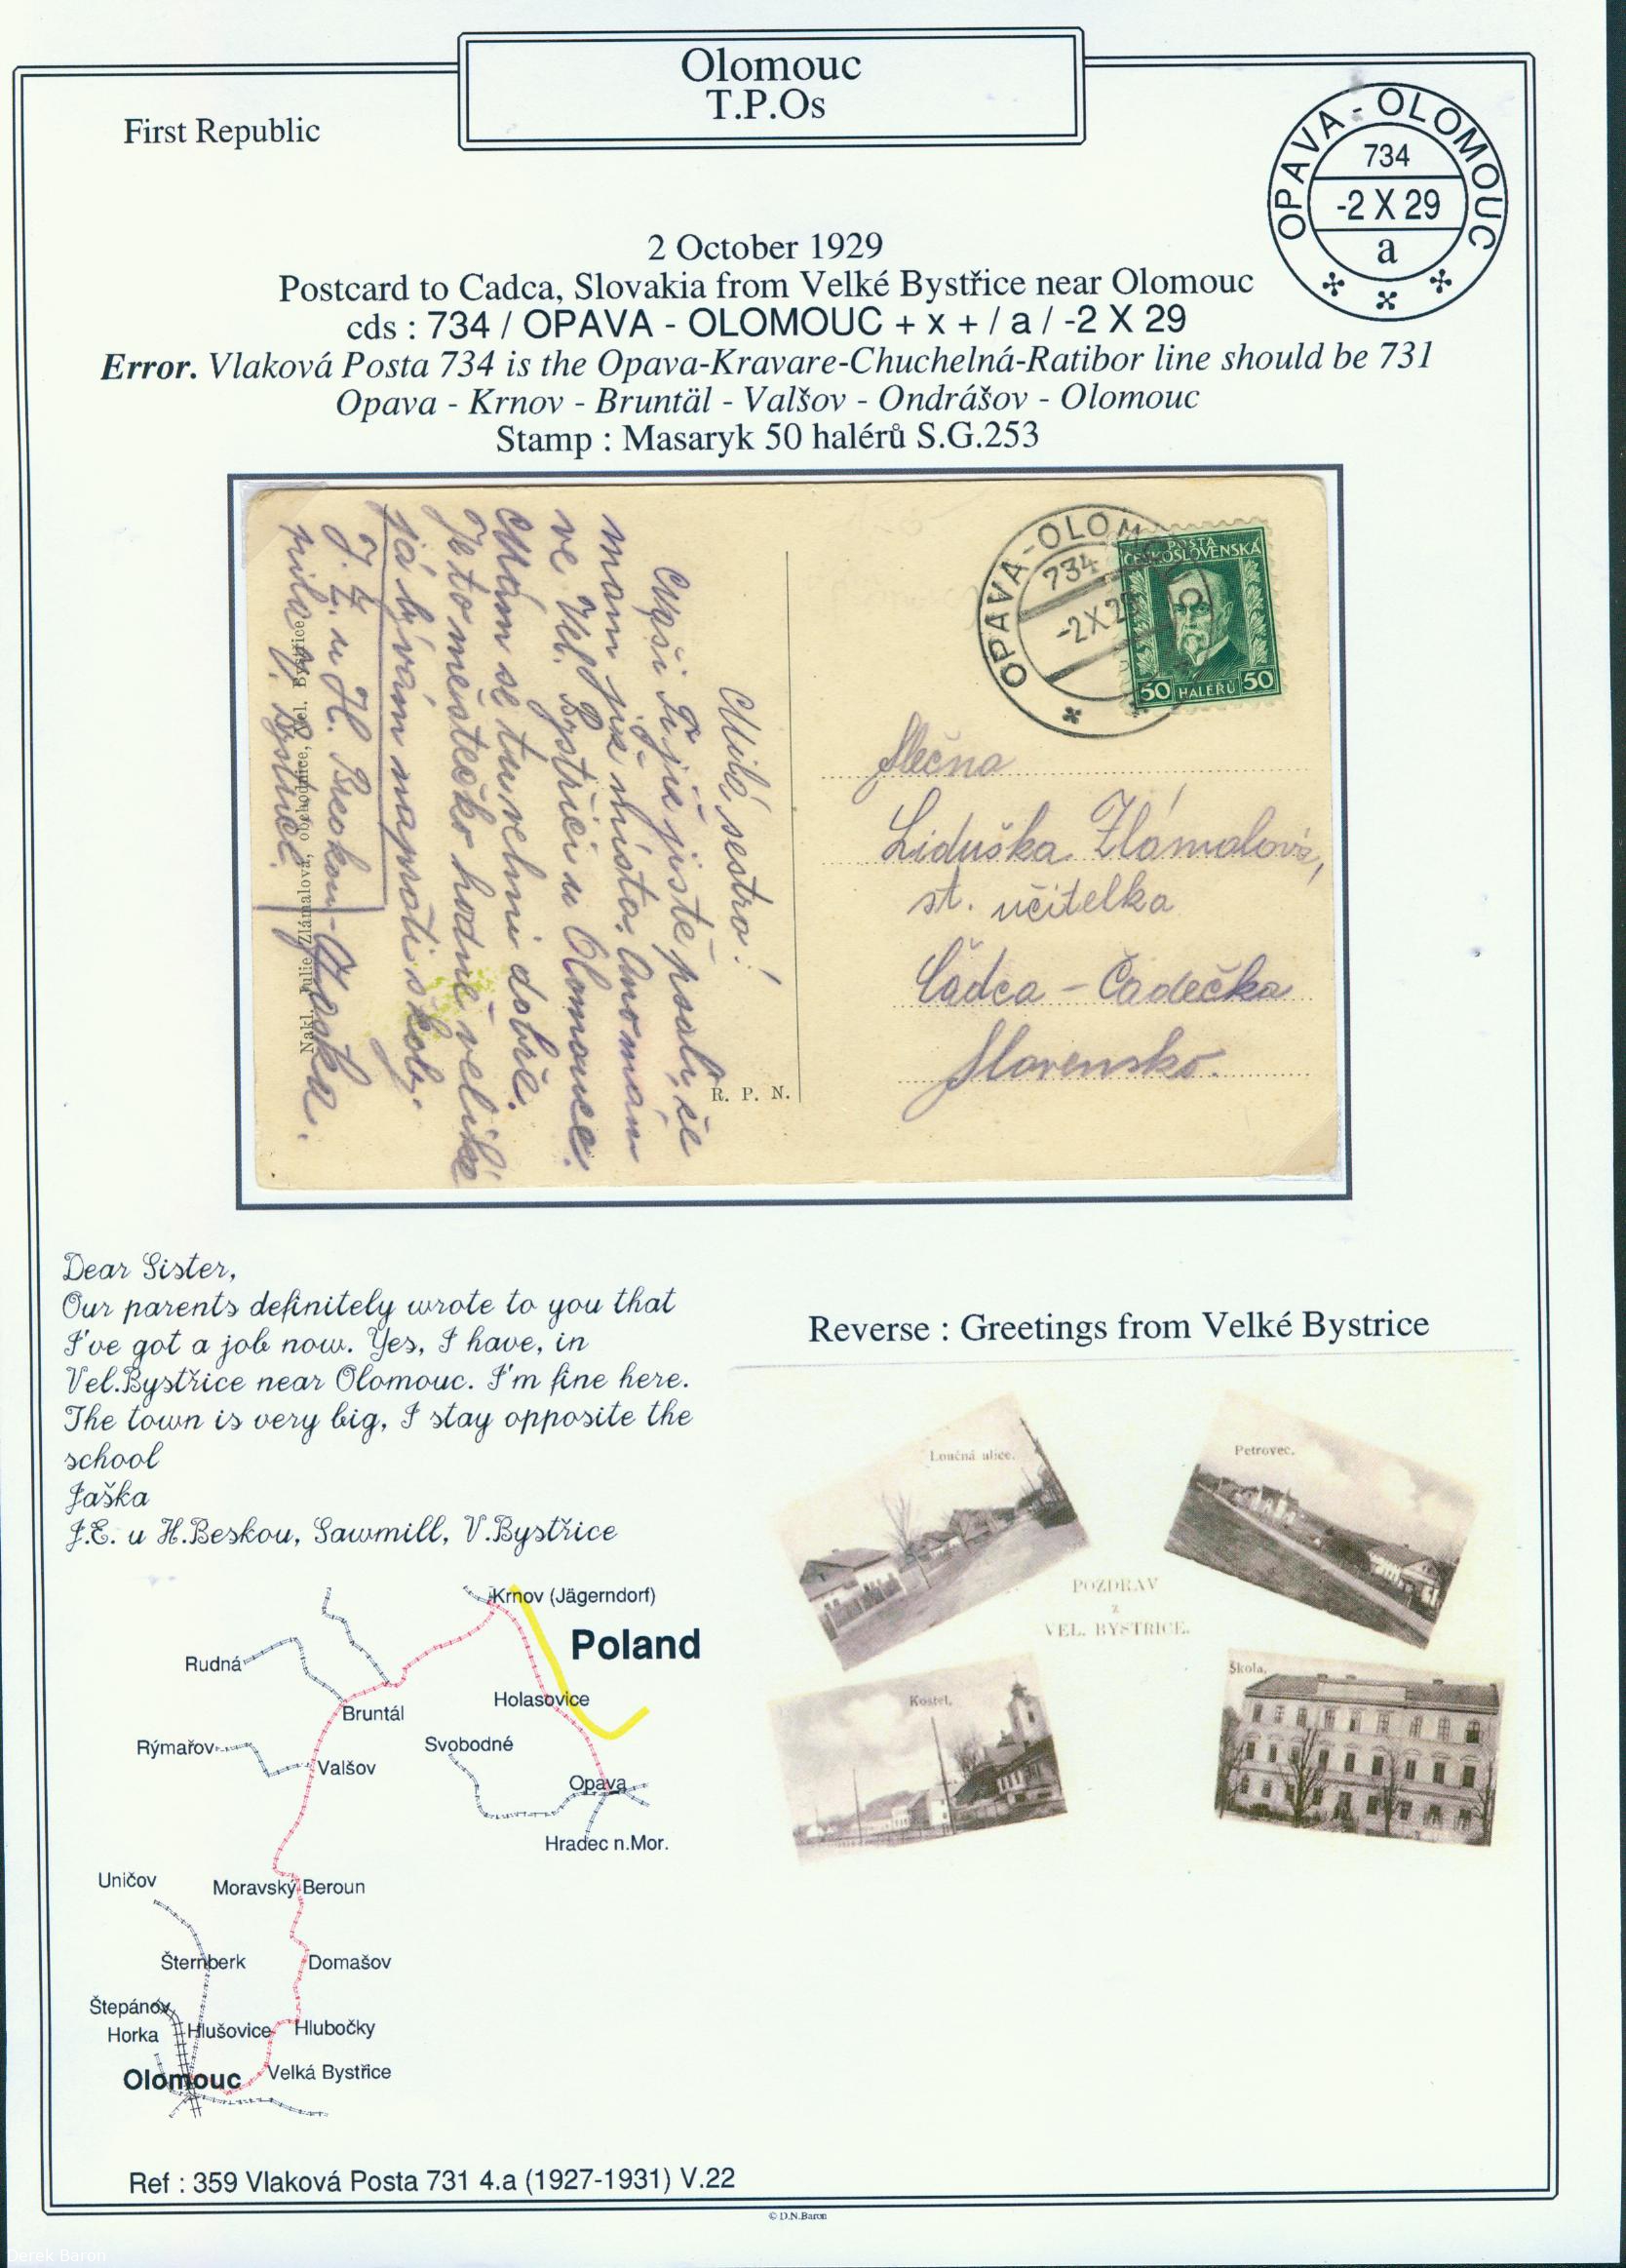 Olomouc
T.P.Os
First Republic
OPAVA - OLOMOUC
734
-2 X 29
a
2 October 1929
Postcard to Cadca, Slovakia from Velké Bystřice near Olomouc
cds : 734 / OPAVA - OLOMOUC + x + / a / -2 X 29
Error. Vlaková Posta 734 is the Opava-Kravare-Chuchelná-Ratibor line should be 731
Opava - Krnov - Bruntäl - Valšov - Ondrášov - Olomouc
Stamp : Masaryk 50 halérů S.G.253
OPAVA-OLOM
734
-2X2
POSTA
ČESKOSLOVENSKÁ
50 HALÉŘŮ 50
Milá sestro!
Naši Ti již jistě psali, že
mám již místo. Ano mám
ve Vel. Bystřici u Olomouce.
Mám se tu velmi dobře.
Je to městečko hodně veliké
já bývám naproti školy.
J. Z. u H.
pila V. Bystřice.
Nakl. Julie Zlámalová, obchodnice, Vel. Bystřice
R. P. N.
Slečna
Liduška Zlámalová,
st. učitelka
Čadca - Čadečka
Slovensko.
Dear Sister,
Our parents definitely wrote to you that
I've got a job now. Yes, I have, in
Vel.Bystřice near Olomouc. I'm fine here.
The town is very big, I stay opposite the
school
Jaška
J.E. u H.Beskou, Sawmill, V.Bystřice
Reverse : Greetings from Velké Bystrice
Loučná ulice.
Petrovec.
POZDRAV
z
VEL. BYSTŘICE.
Kostel.
Škola.
Krnov (Jägerndorf)
Poland
Rudná
Holasovice
Bruntál
Svobodné
Rýmařov
Valšov
Opava
Hradec n.Mor.
Uničov
Moravský Beroun
Šternberk
Domašov
Štepánov
Horka
Hlušovice
Hlubočky
Olomouc
Velká Bystřice
Ref : 359 Vlaková Posta 731 4.a (1927-1931) V.22
© D.N.Baron
Derek Baron